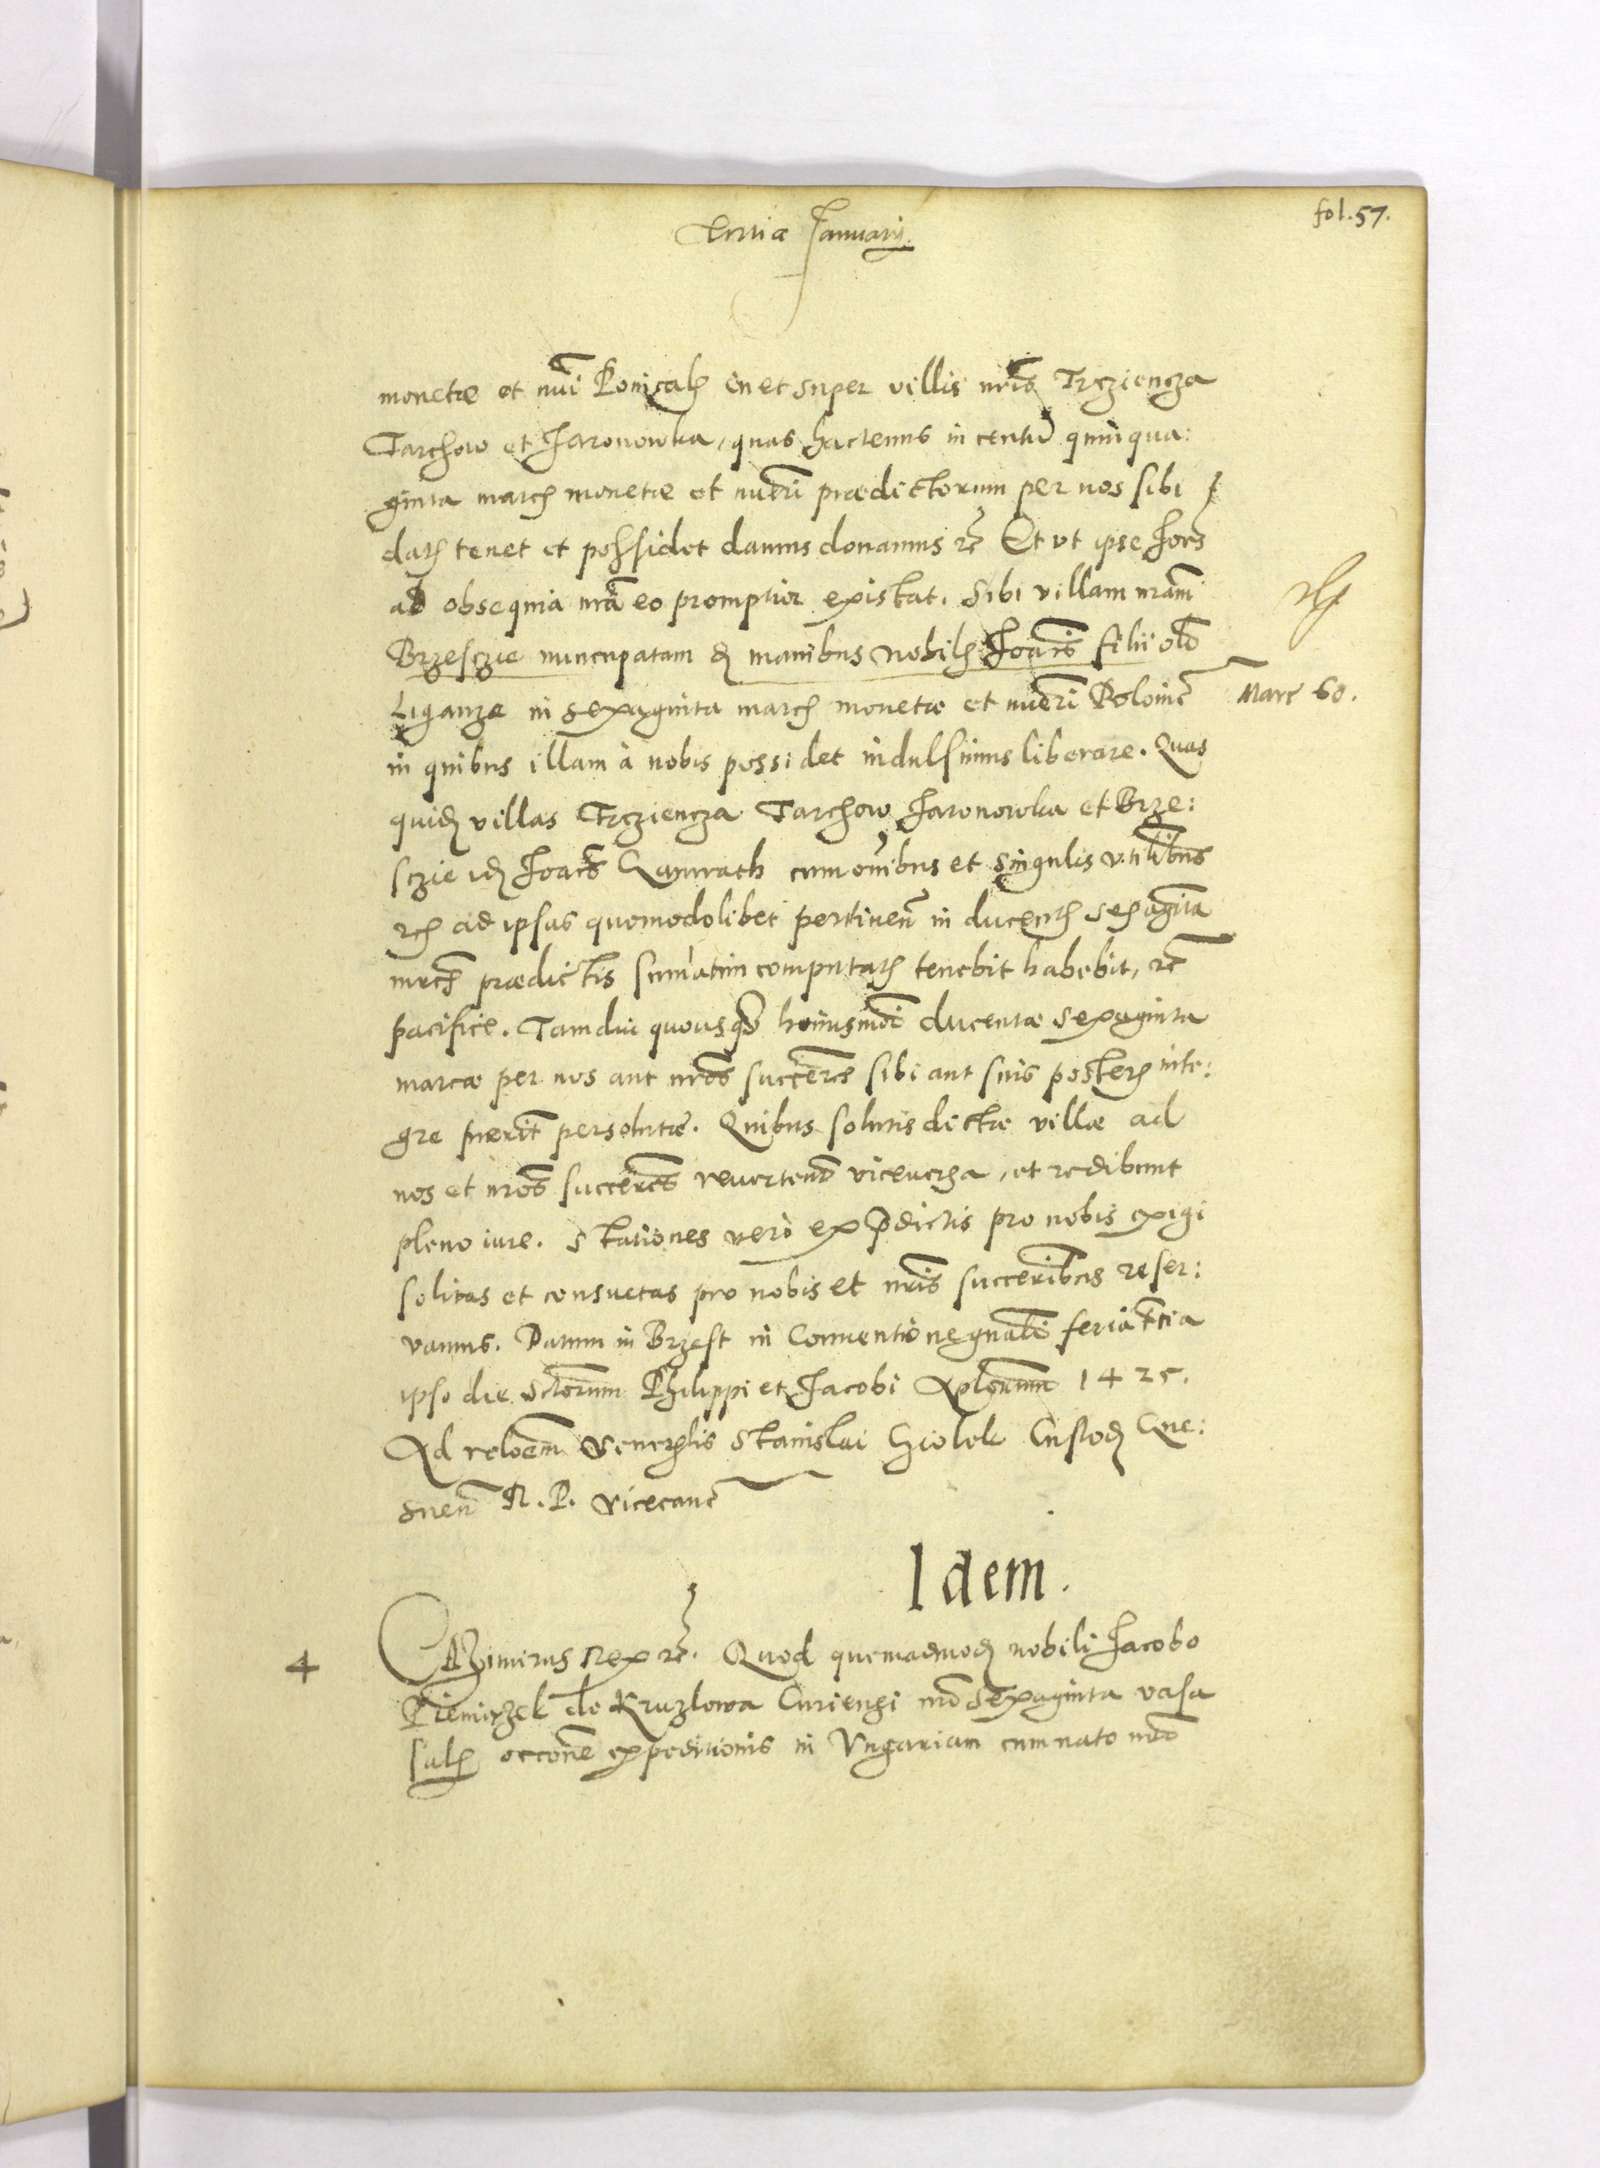 fol. 57.
Tertia Januarij.
monetæ et nūi Polonicalʒ in et super villis nrīs Trcziencza
Tarchow et Jaronowka, quas hactenus in centū quinqua:
ginta marcʒ monetæ et nuerī prædictorum per nos sibi
datʒ tenet et possidet damus donamus rc̄ Et vt ipse
ad obsequia nrā eo promptior existat. Sibi villam nram̄
Brzesczie nuncupatam de manibus nobilʒ Joaīs filii olī
Liganzæ in sexaginta marcʒ monetæ et nuerī Polonic̄
Marc 60.
in quibus illam à nobis possidet indulsimus liberare. Quas
quidʒ villas Trcziencza Tarchow Jaronowka et Brze:
sczie idʒ Joaēs cum oīnibus et singulis vtilibus
rcʒ ad ipsas quomodolibet pertinen̄ in ducentʒ sexaginta
mrcʒ prædictis sum̄atim computatʒ tenebit habebit, rc̄
pacifice. Tamdiu quousqʒ huiusmōi ducentæ sexaginta
marcæ per nos aut nros̄ succeres̄ sibi aut suis posterʒ inte:
gre fuerit̄ persolutæ. Quibus solutis dictæ villæ ad
nos et nros̄ succeres̄ reuertend̄ viceuersa, et redibunt
pleno iure. Stationes verò ex p̄dictis pro nobis exigi
solitas et consuetas pro nobis et nrīs succerib̄us reser:
vamus. Datum in Brzest in Conuentione gnalī feria tertia
ipso die sctorum̄ Philippi et Jacobi Aplorum̄ 1425.
Ad reloem̄ venerblis Stanislai Cziolek Custodʒ Gne:
snen̄ R. P. vicecanc̄
Idem.
4
CAzimirus Rex rc̄. Quod quemadmodʒ nobili Jacobo
Pieniczek de Kruzlowa Curiensi nrō sexaginta vasa
salʒ occōne expeditionis in Vngariam cum nato nrō